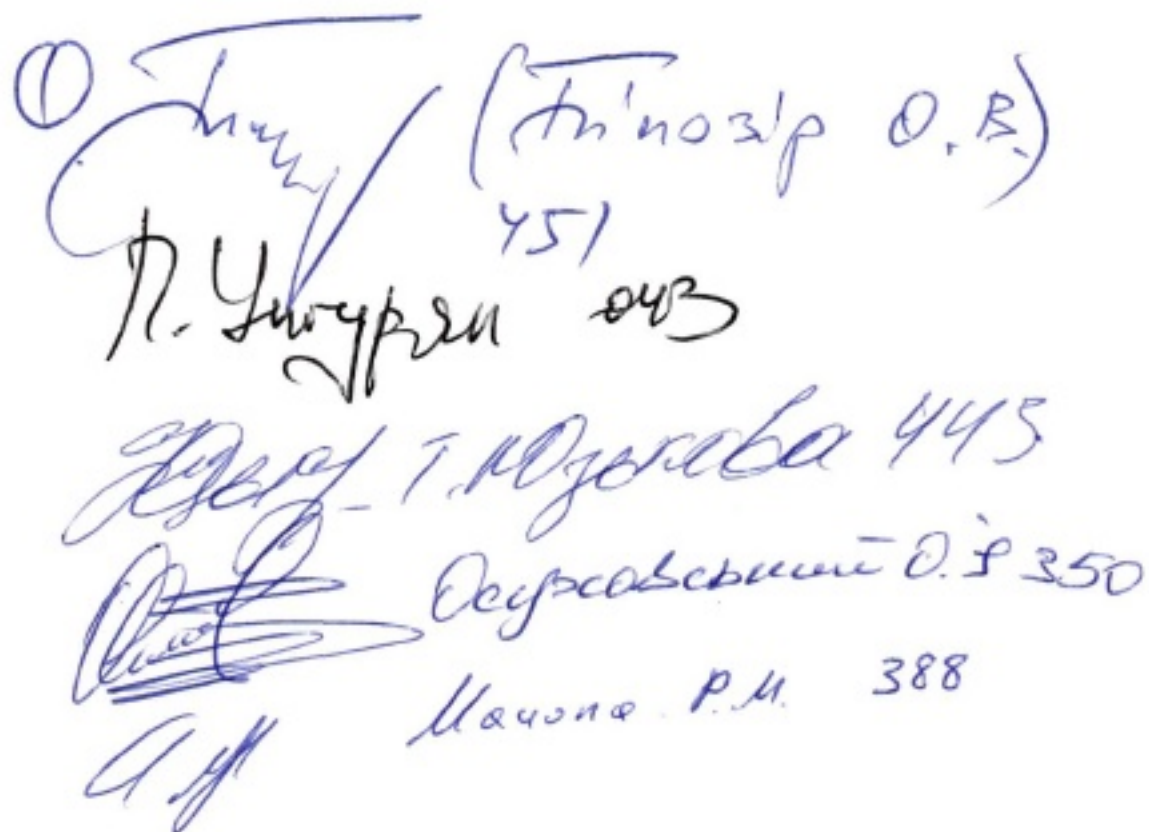 (Білозір О.В.)
451
П. Унгурян 043
Т. Юзькова 443
Осуховський О.І 350
Мацола Р.М. 388